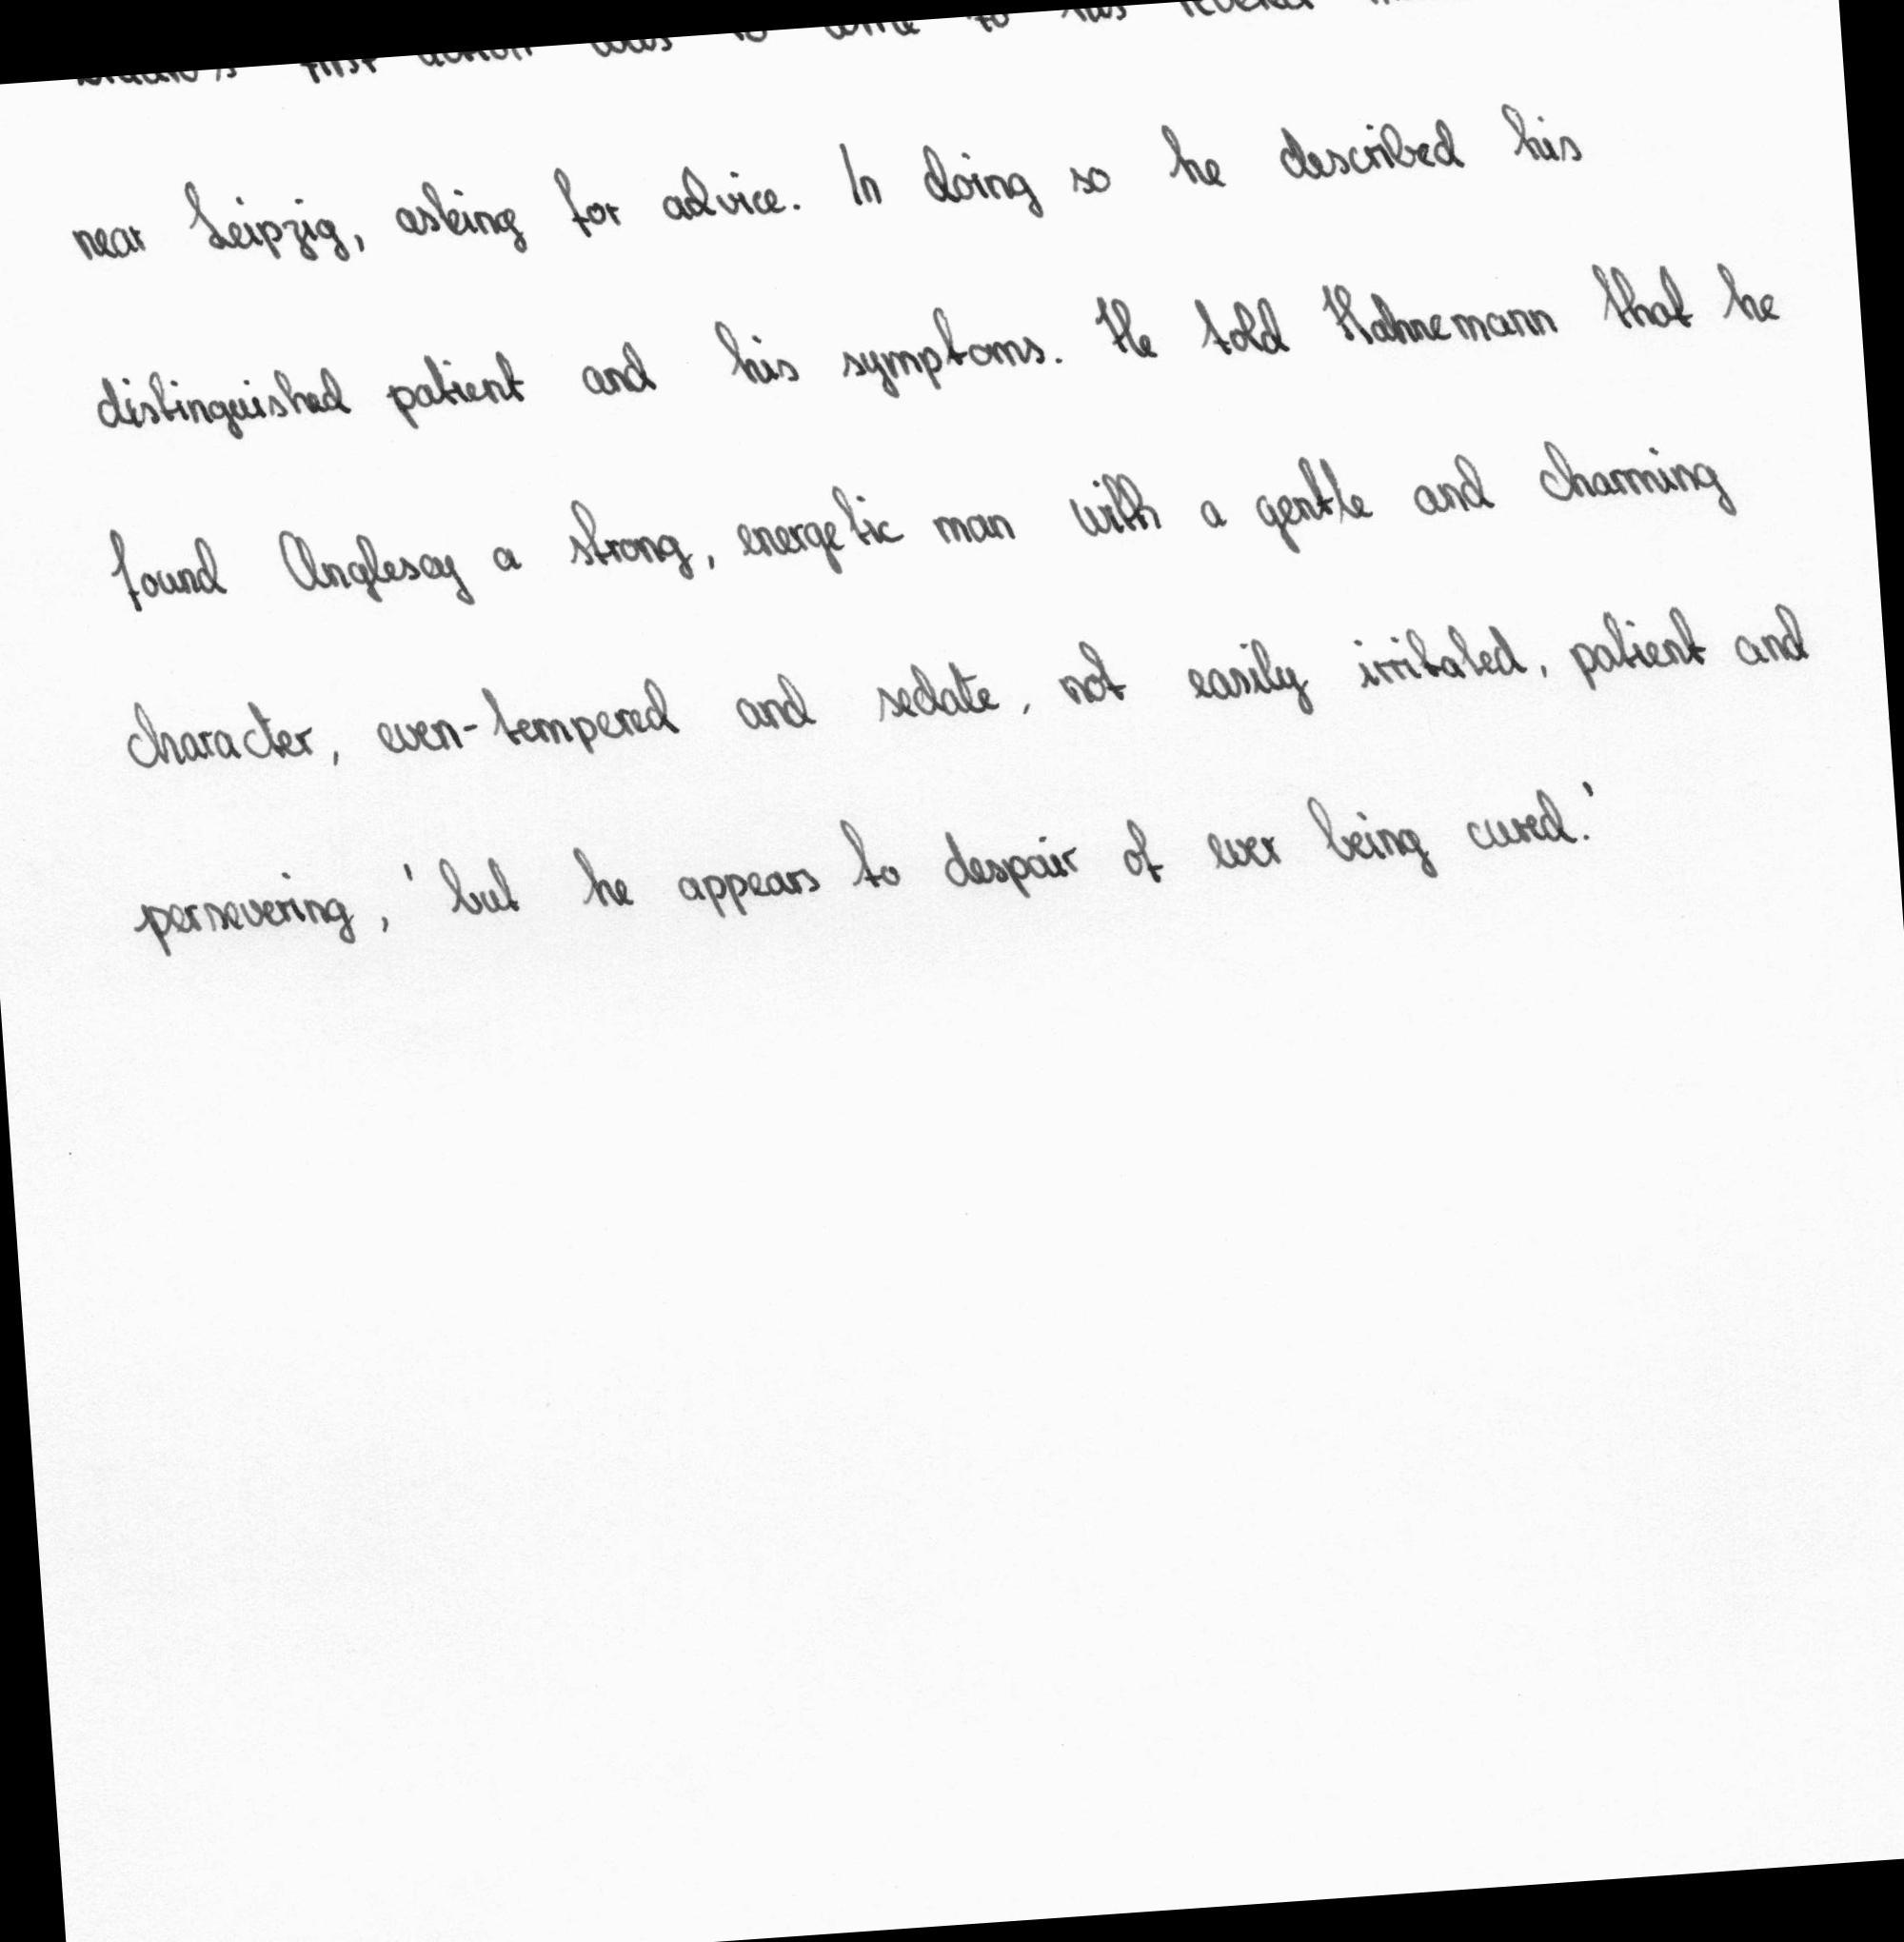 first action was to write to his revered
near Leipzig, asking for advice. In doing so he described his
distinguished patient and his symptoms. He told Hahnemann that he
found Anglesey a strong, energetic man with a gentle and charming
character, even-tempered and sedate, not easily irritated, patient and
persevering, 'but he appears to despair of ever being cured.'